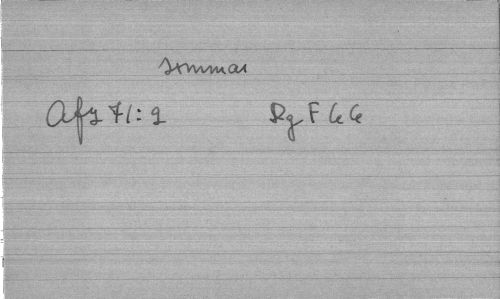 stmmar
Afz 71:2 Rg F 66